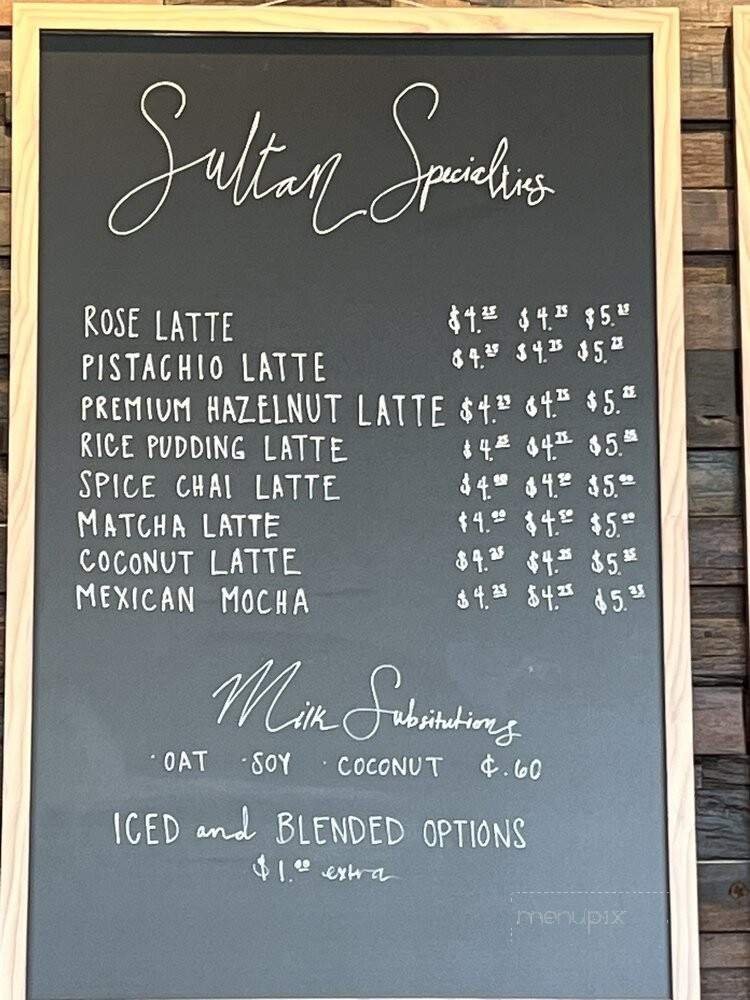 Sultan Specialties
ROSE LATTE $4.25 $4.75 $5.25
PISTACHIO LATTE $4.25 $4.75 $5.25
PREMIUM HAZELNUT LATTE $4.25 $4.75 $5.25
RICE PUDDING LATTE $4.25 $4.75 $5.25
SPICE CHAI LATTE $4.00 $4.50 $5.00
MATCHA LATTE $4.00 $4.50 $5.00
COCONUT LATTE $4.25 $4.75 $5.25
MEXICAN MOCHA $4.25 $4.75 $5.25
Milk Subsitutions
·OAT ·SOY ·COCONUT ¢.60
ICED and BLENDED OPTIONS
$1.00 extra
menupix